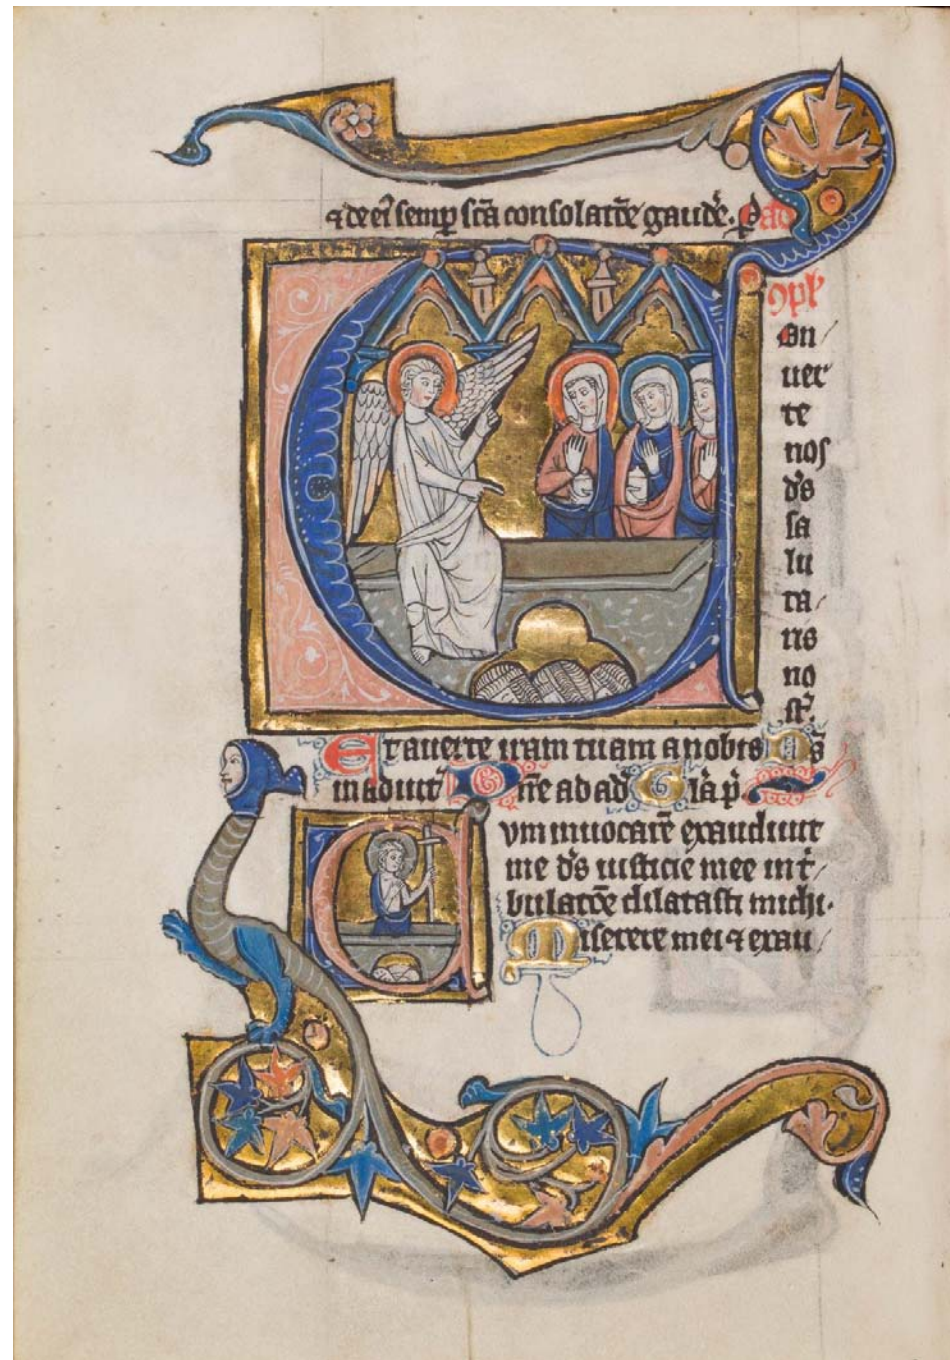 ⁊ de ei᷒ semꝑ sc̄a consolatōe gaudē. ꝑ
ꝯpl'
on
uer
te
nos
ds̄
sa
lu
ta
ris
no
st᷑.
Et auerte iram tuam a nobis Ds̄
in adiut᷑ Dn̄e ad ad᷑ Gl'a p̄.
vm inuocarē exaudiuit
me ds̄ iusticie mee in t᷑
bulatōe dilatasti michi.
Miserere mei ⁊ exau